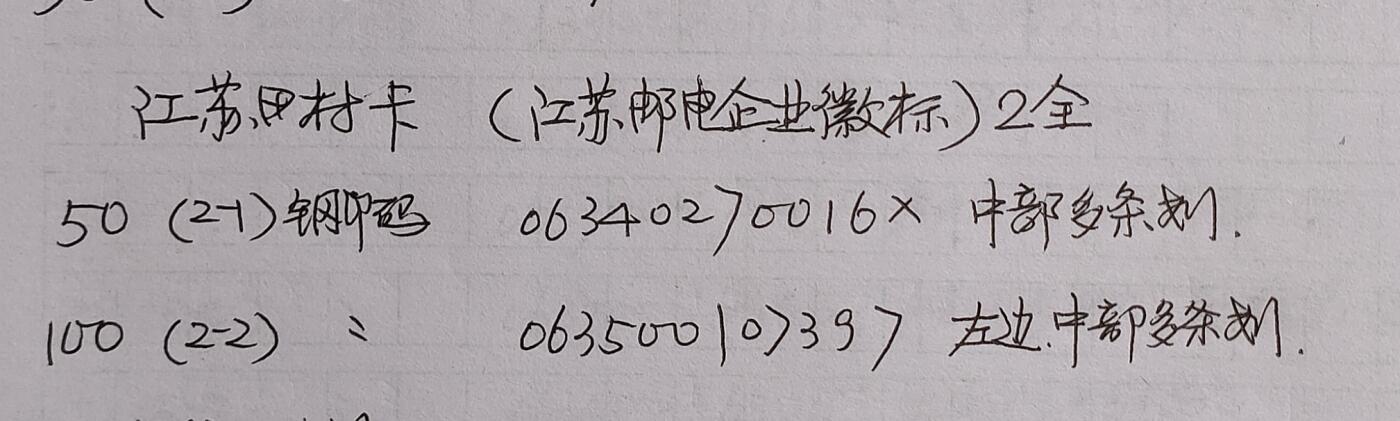 江苏田村卡 (江苏邮电企业徽标) 2全
50 (2-1) 钢印码 06340270016X 中部多条划.
100 (2-2) 〃 063500107397 左边.中部多条划.